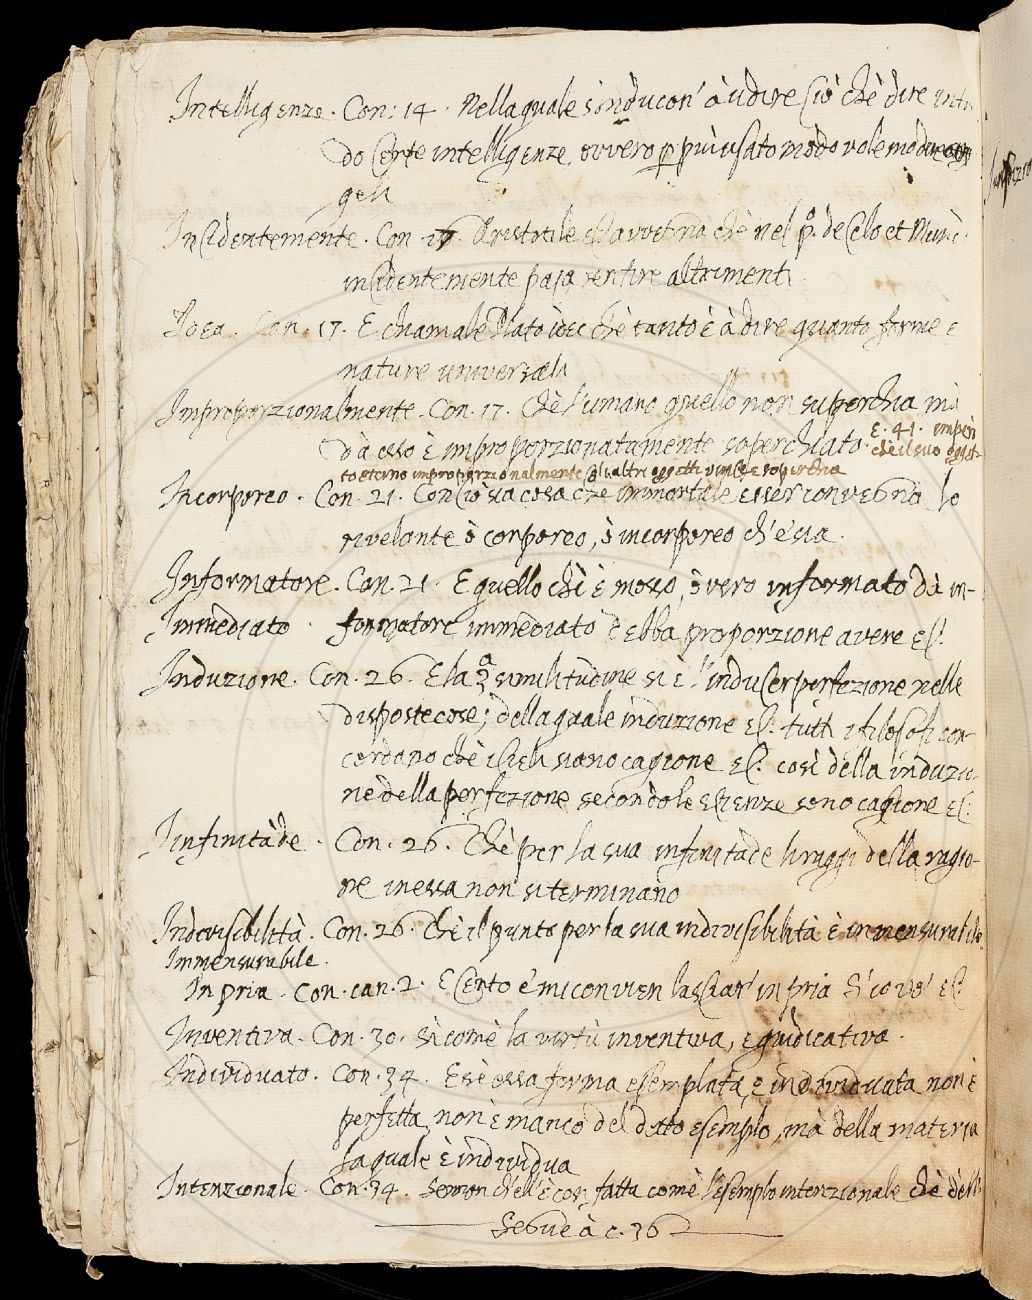 Intelligenze. Con: 14. Nella quale s'inducon' à udire ciò chè dire inten
do certe intelligenze, ovvero p più usato modo volemo dire an
geli
Incidentemente. Con. 17. Aristotile chè nel p.º de Celo et Mund
incidentemente paja sentire altrimenti
Idea. Con. 17. E chiamale Plato idee chè tanto è à dire quanto forme e
nature universali
Improporzionalmente. Con. 17. Chè l'umano quello non superchia mà
dà esso è improporzionatamente soperchiato. E. 41. imperò
chè il suo ogget-
to eterno improporzionalmente gli altri oggetti vince e soperchia
Incorporeo. Con. 21. Conciò sia cosa che immortale esser convegna lo
rivelante ò corporeo, ò incorporeo ch'e' sia.
Informatore. Con. 21. E quello chè è mosso, òvero informato dà in-
Immediato. formatore immediato debba proporzione avere Ec:
Induzione. Con. 26. E la 3ª similitudine si è l'inducer perfezione nelle
disposte cose; della quale induzione Ec: tutti i filosofi con-
cordano chè i cieli siano cagione Ec: così della induzio-
ne della perfezione secondo le scienze sono cagione Ec:
Infinitàde. Con. 26. Chè per la sua infinitade li raggi della ragio-
ne in essa non si terminano
Indivisibilità. Con. 26. Chè il punto per la sua indivisibilità è immensurabile
Immensurabile.
In pria. Con. can. 2. E certo e' mi convien lasciar' in pria S'io vo' Ec:
Inventiva. Con. 30. sì comè la virtù inventiva, e giudicativa.
Individuato. Con. 34. E sè essa forma esemplata, e individuata non è
perfetta, non è manco del detto esemplo, mà della materia
la quale è individua
Intenzionale. Con. 34. sèmon ch'ell' è con fatta comè l'esemplo intenzionale chè dell
Segue à c. 36